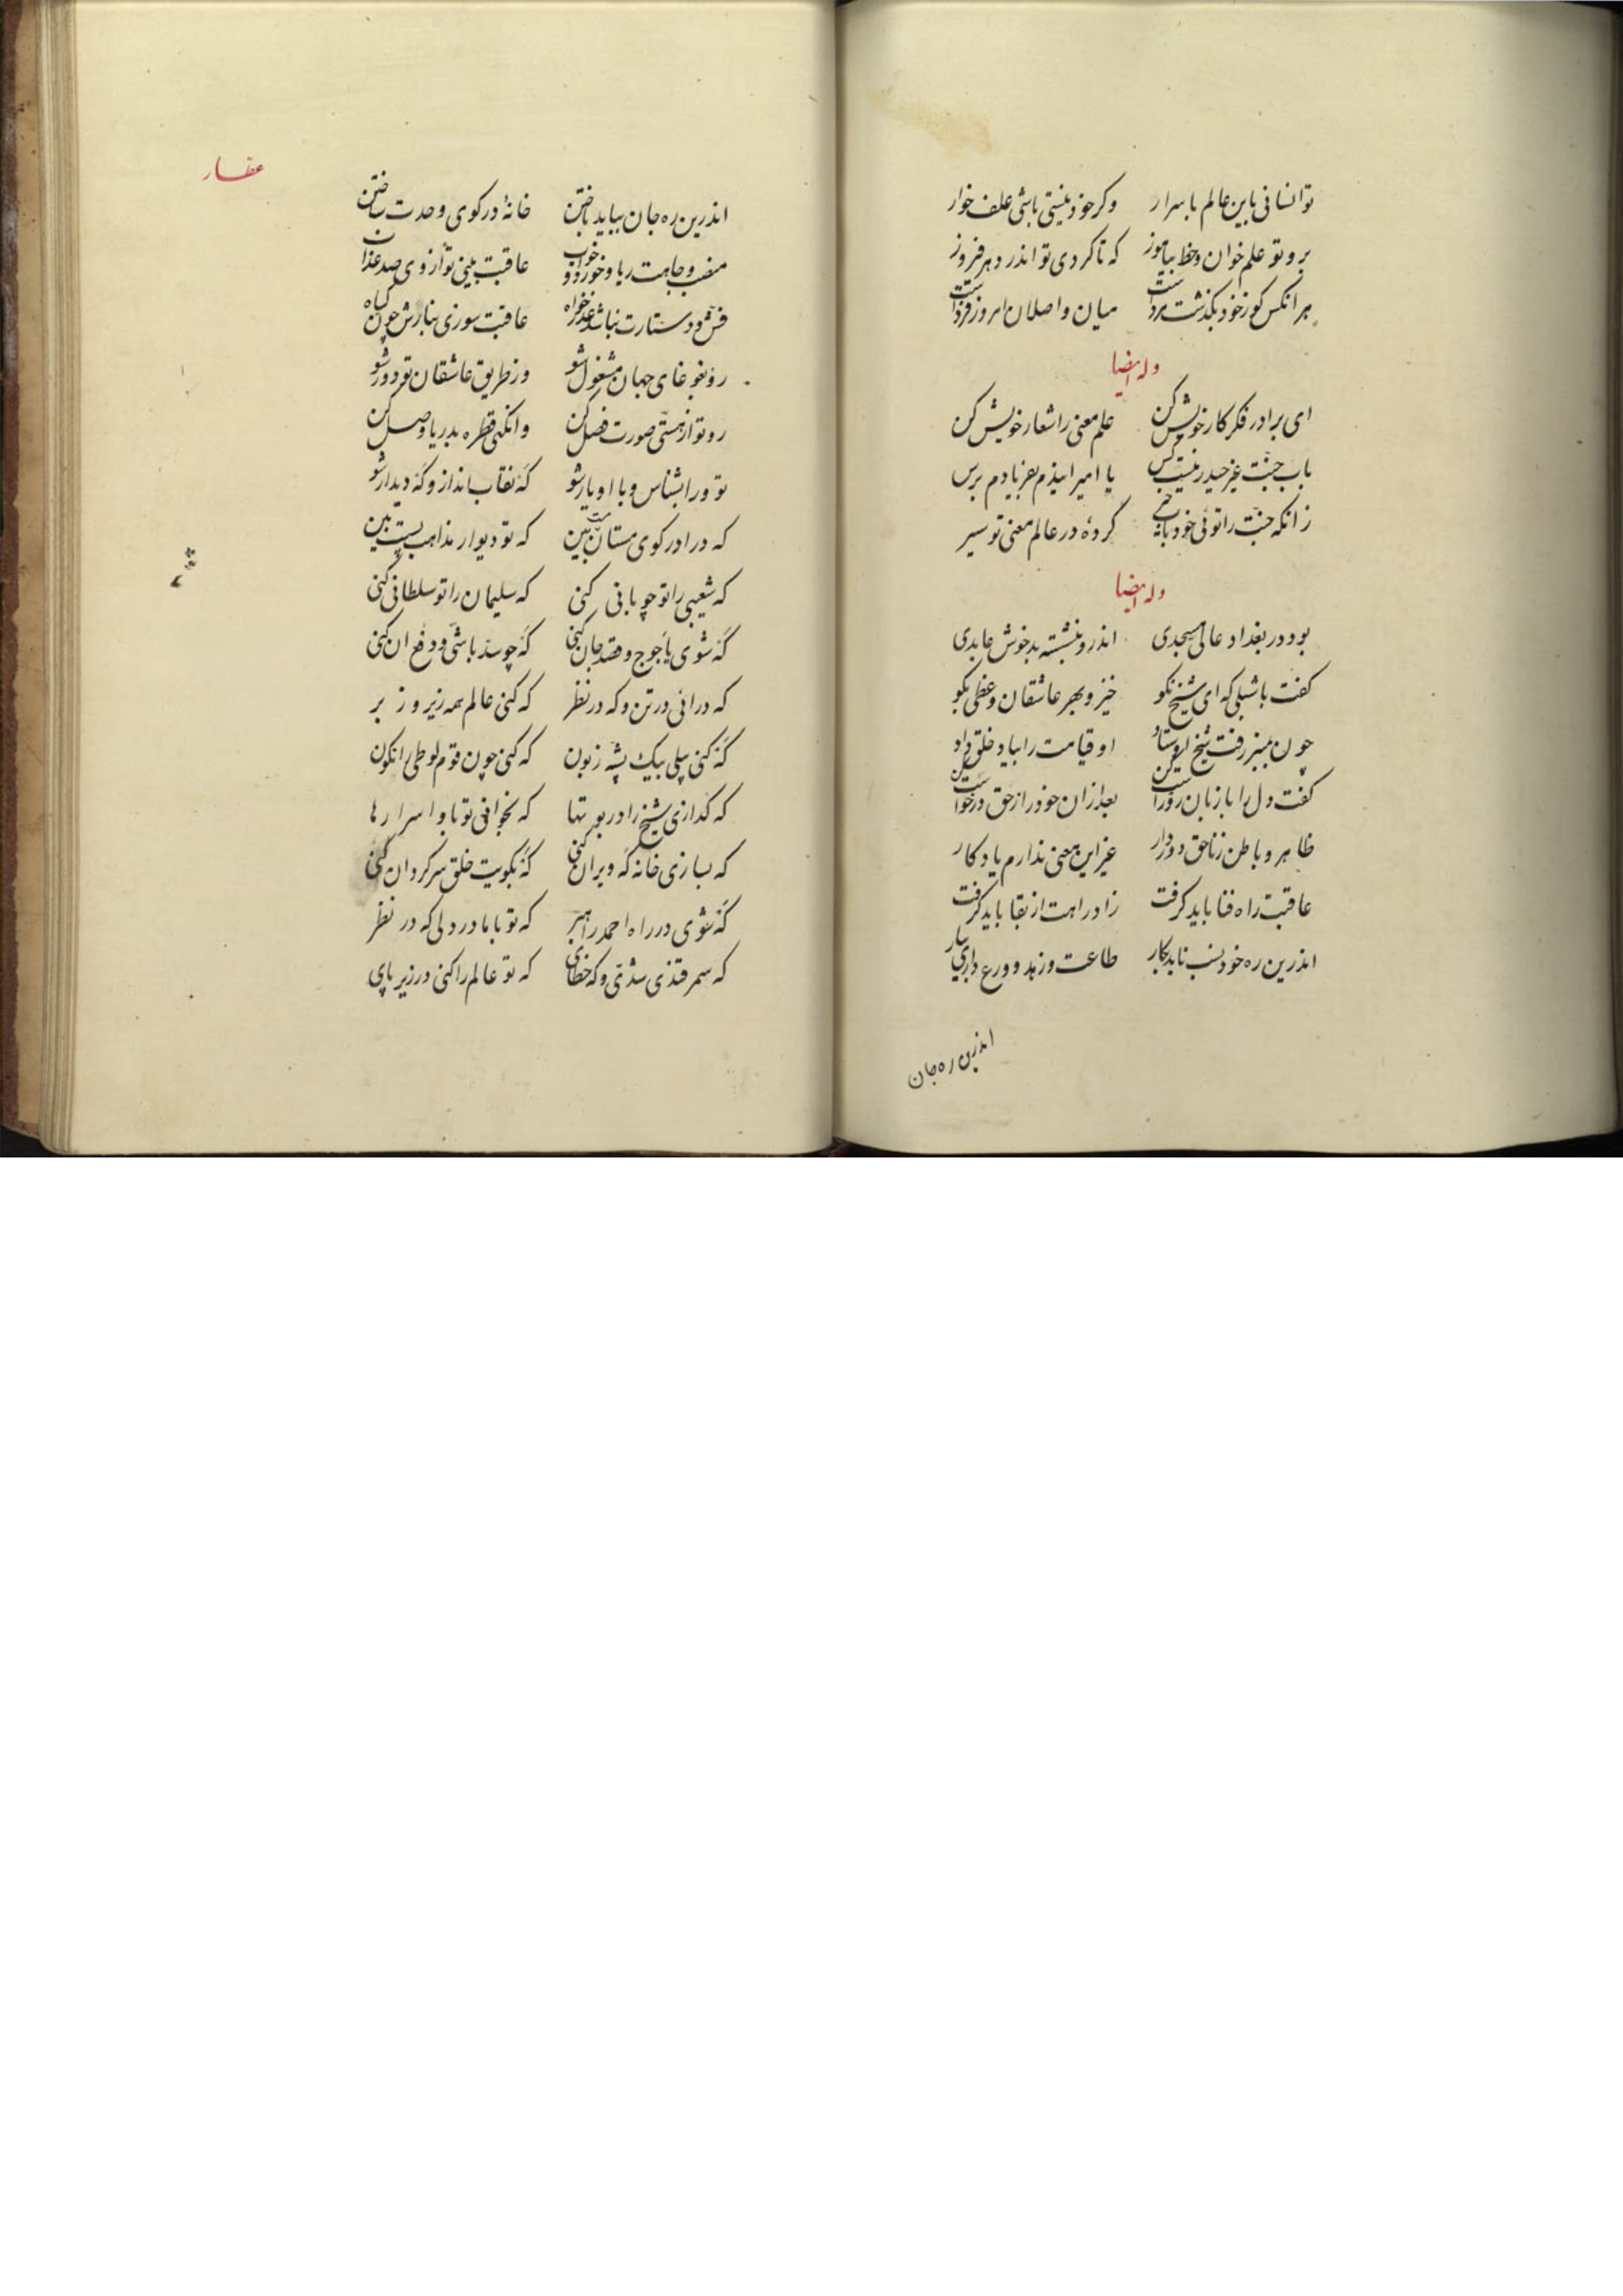 تو انسانی باین عالم باسرار وکر خود نیستی باشی علف خوار
برو تو علم خوان وخط بیاموز که تا کردی تو اندر دهر فیروز
هر انکس کو زخود بکذشت مرداست میان واصلان امروز فرداست
وله ایضا
ای برادر فکر کار خویش کن علم معنی را شعار خویش کن
باب جنّت غیر حیدر نیست کس یا امیرا بیذم بفریادم برس
زانکه جنّت را توئی خود باب کردهٔ در عالم معنی تو سیر
وله ایضا
بود در بغداد عالی مسجدی اندرو بنشسته بد خوش عابدی
کفت با شبلی که ای شیخ نکو خیز و بهر عاشقان وعظی بکو
چون بمنبر رفت شیخ اوستاد او قیامت را بیاد خلق داد
کفت دل را با زبان رو راست کن بعد ازان خود را زحق درخواست کن
ظاهر و باطن زناحق دور دار غیر این معنی ندارم یادکار
عاقبت راه فنا باید کرفت زاد راهت از بقا باید کرفت
اندرین ره خود نسب ناید بکار طاعت وزهد و ورع داری بیار
اندرین ره جان
عطار
اندرین ره جان بباید باختن خانهٔ در کوی وحدت ساختن
منصب وجاهت ریا وخورد و خواب عاقبت بینی تو ازوی صد عذاب
فش ودستارت نباشد عذرخواه عاقبت سوزی بنارش چون کیاه
رو بغوغای جهان مشغول شو وز طریق عاشقان تو دور شو
رو تو از هستی صورت فصل کن وانکهی قطره بدریا وصل کن
تو ورا بشناس وبا او یار شو که نقاب انداز وکه دیدار شو
که درا در کوی مستان مست بین که تو دیوار مذاهب پست بین
که شعیبی را تو چوبانی کنی که سلیمان را تو سلطانی کنی
که شوی یاجوج وقصد جان کنی که چو سد باشی ودفع ان کنی
که درائی در تن وکه در نظر که کنی عالم همه زیر و زبر
که کنی پیلی بیک پشه زبون که کنی چون قوم لوطی را نکون
که کدازی شیخ را در بوتها که بخوانی تو باو اسرارها
که بسازی خانه که ویران کنی که بکویت خلق سرکردان کنی
که شوی در راه احمد راهبر که تو با ما در دلی که در نظر
که سمرقندی شدی وکه خطای که تو عالم را کنی در زیر پای